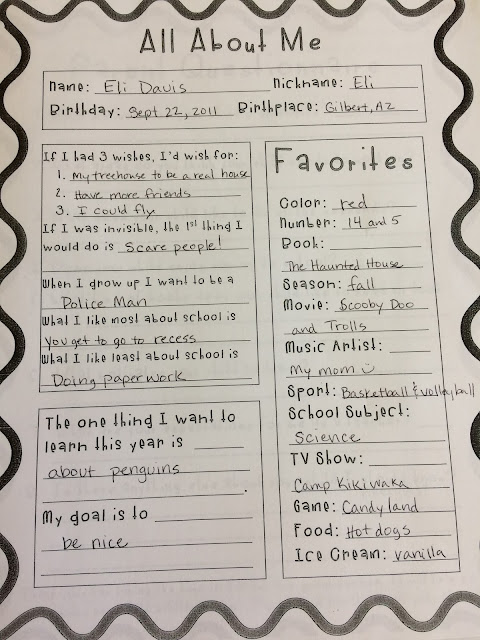 All About Me
Name: Eli Davis Nickname: Eli
Birthday: Sept 22, 2011 Birthplace: Gilbert, AZ
If I had 3 wishes, I'd wish for:
1. My treehouse to be a real house
2. Have more friends
3. I could fly
If I was invisible, the 1st thing I
would do is Scare people!
When I grow up I want to be a
Police Man
What I like most about school is
You get to go to recess
What I like least about school is
Doing paperwork
The one thing I want to
learn this year is
about penguins
.
My goal is to
be nice
Favorites
Color: red
Number: 14 and 5
Book:
The Haunted House
Season: fall
Movie: Scooby Doo
and Trolls
Music Artist:
My mom ☺
Sport: Basketball & volleyball
School Subject:
Science
TV Show:
Camp Kikiwaka
Game: Candyland
Food: Hot dogs
Ice Cream: vanilla